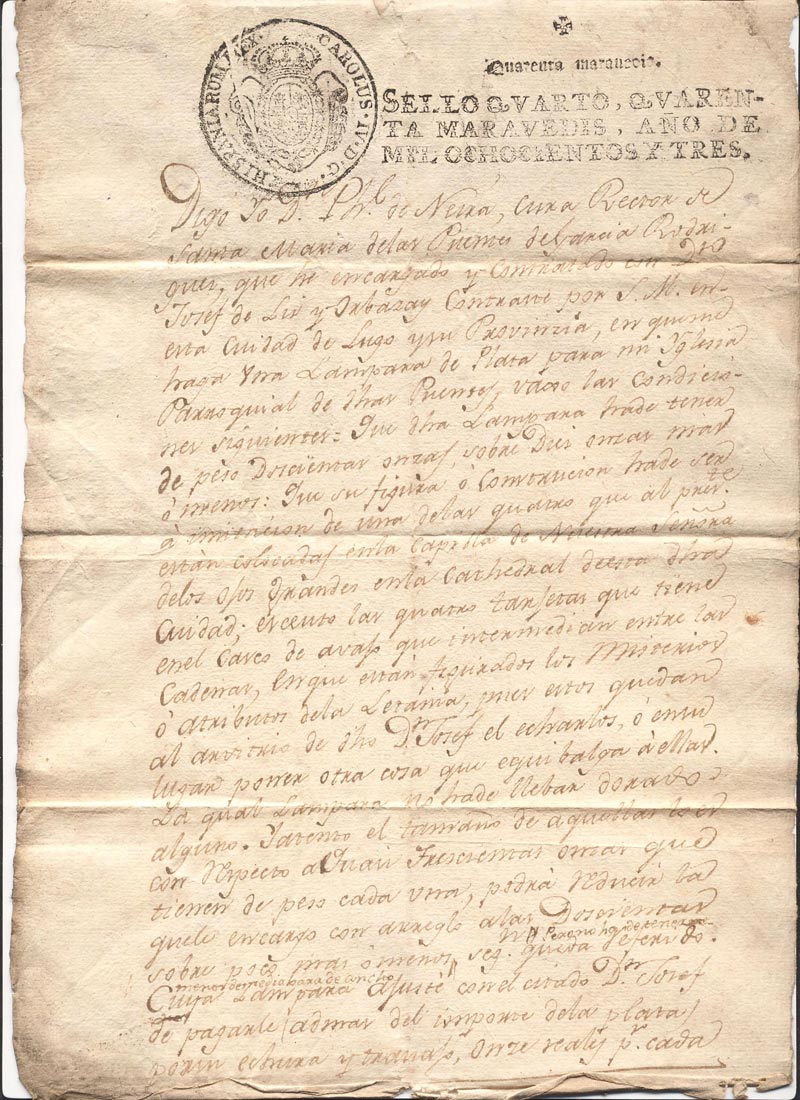 CAROLUS · IV · D · G · HISPANIARUM REX ·
Quarenta marauedis.
SELLO QVARTO, QVAREN-
TA MARAVEDIS, AÑO DE
MIL OCHOCIENTOS Y TRES.
Digo Yo Dn. Phl. de Neira, Cura Rector de
Santa Maria delas Puentes de Garcia Rodri-
guez, que he encargado y Contratado con Dn.
Josef de Liz y Orbazay Contraste por S. M. en
esta Ciudad de Lugo y su Provinzia, en que me
haga Vna Lampara de Plata para mi Yglesia
Parroquial de dhas Puentes, vaxo las Condicio-
nes siguientes: Que dha Lampara hade tener
de peso Doscientas onzas, sobre Diez onzas mas
ó menos: Que su figura ó Construcion hade ser
á imitacion de una delas quatro que al prete.
están colocadas enla Capilla de Nuestra Señora
delos Ojos Grandes enla Cathedral deesta dha
Ciudad; excepto las quatro tarjetas que tiene
enel Carco de avajo que intermedian entre las
Cadenas, en que están figurados los Misterios
ó atributos dela Letania, pues estos quedan
al arvitrio de dho Dn. Josef el echarlos, ó en su
lugar poner otra cosa que equibalga á ellas.
La qual Lampara no hade llebar dorado
alguno. Y atento el tamaño de aquellas es
con respecto a Quasi Trescientas onzas que
tienen de peso cada una, podrá reducir la
quele encargo con arreglo alas Doscientas
sobre poco mas ó menos, seg. queda referido.
Pero no ha de tener
menos de media bara de ancho
Cuya Lampara Ajusté con el citado Dn. Josef
de pagarle (ademas del importe dela plata)
por su echura y travajo, Onze reales pr. cada